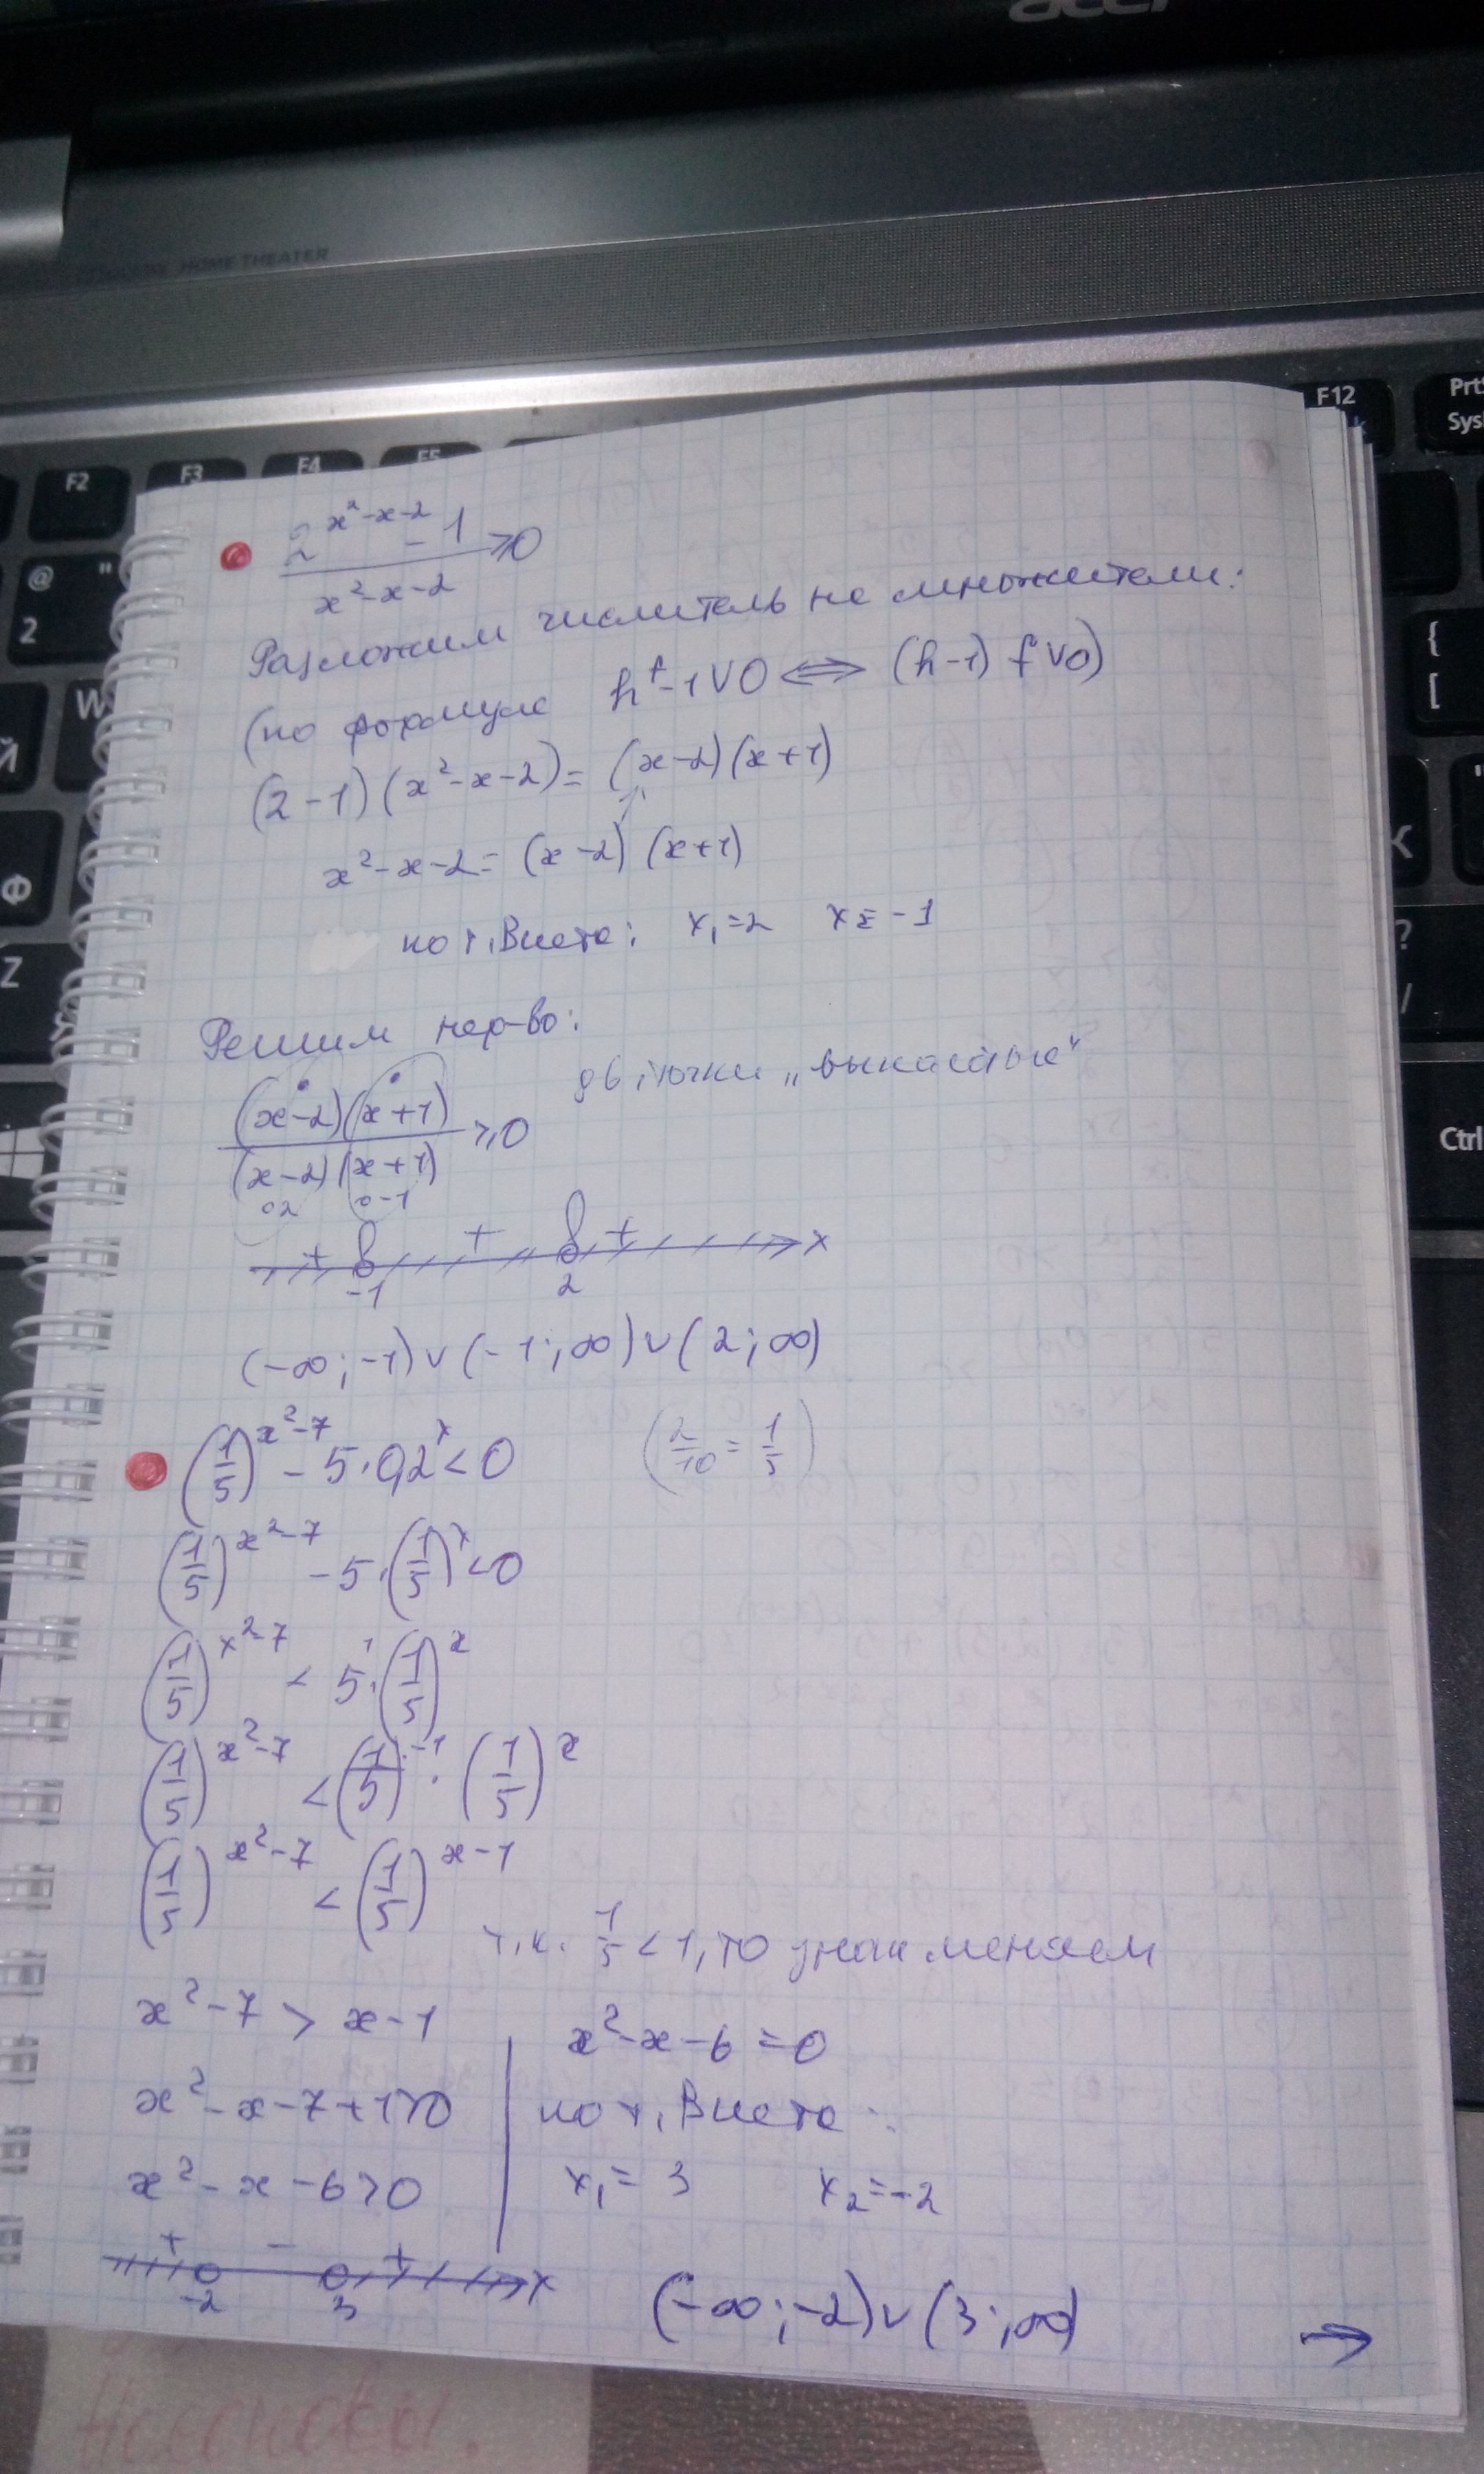 acer
HOME THEATER
F2 F3 F4 F5 F12 Prt
Sys
@ "
2
W
Й
Ф
Z
{
[
"
'
?
/
Ctrl
(2^(x²-x-2) - 1)/(x²-x-2) ≥ 0
Разложим числитель на множители:
(по формуле h^f-1 V 0 ⟺ (h-1) f V 0)
(2-1)(x²-x-2) = (x-2)(x+1)
x²-x-2 = (x-2)(x+1)
по т. Виета: x₁=2 x₂=-1
Решим нер-во:
дв. точки „выколотые“
((x-2)(x+1))/((x-2)(x+1)) ≥ 0
∘2 ∘-1
+ + + x
-1 2
(-∞;-1)∪(-1;∞)∪(2;∞)
(1/5)^(x²-7) - 5·0,2^x < 0 (2/10 = 1/5)
(1/5)^(x²-7) - 5·(1/5)^x < 0
(1/5)^(x²-7) < 5¹·(1/5)^x
(1/5)^(x²-7) < (1/5)^(-1)·(1/5)^x
(1/5)^(x²-7) < (1/5)^(x-1)
т.к. 1/5 < 1, то знак меняем
x²-7 > x-1
x²-x-7+1>0
x²-x-6>0
x²-x-6=0
по т. Виета:
x₁=3 x₂=-2
+ - + x
-2 3
(-∞;-2)∪(3;∞) →